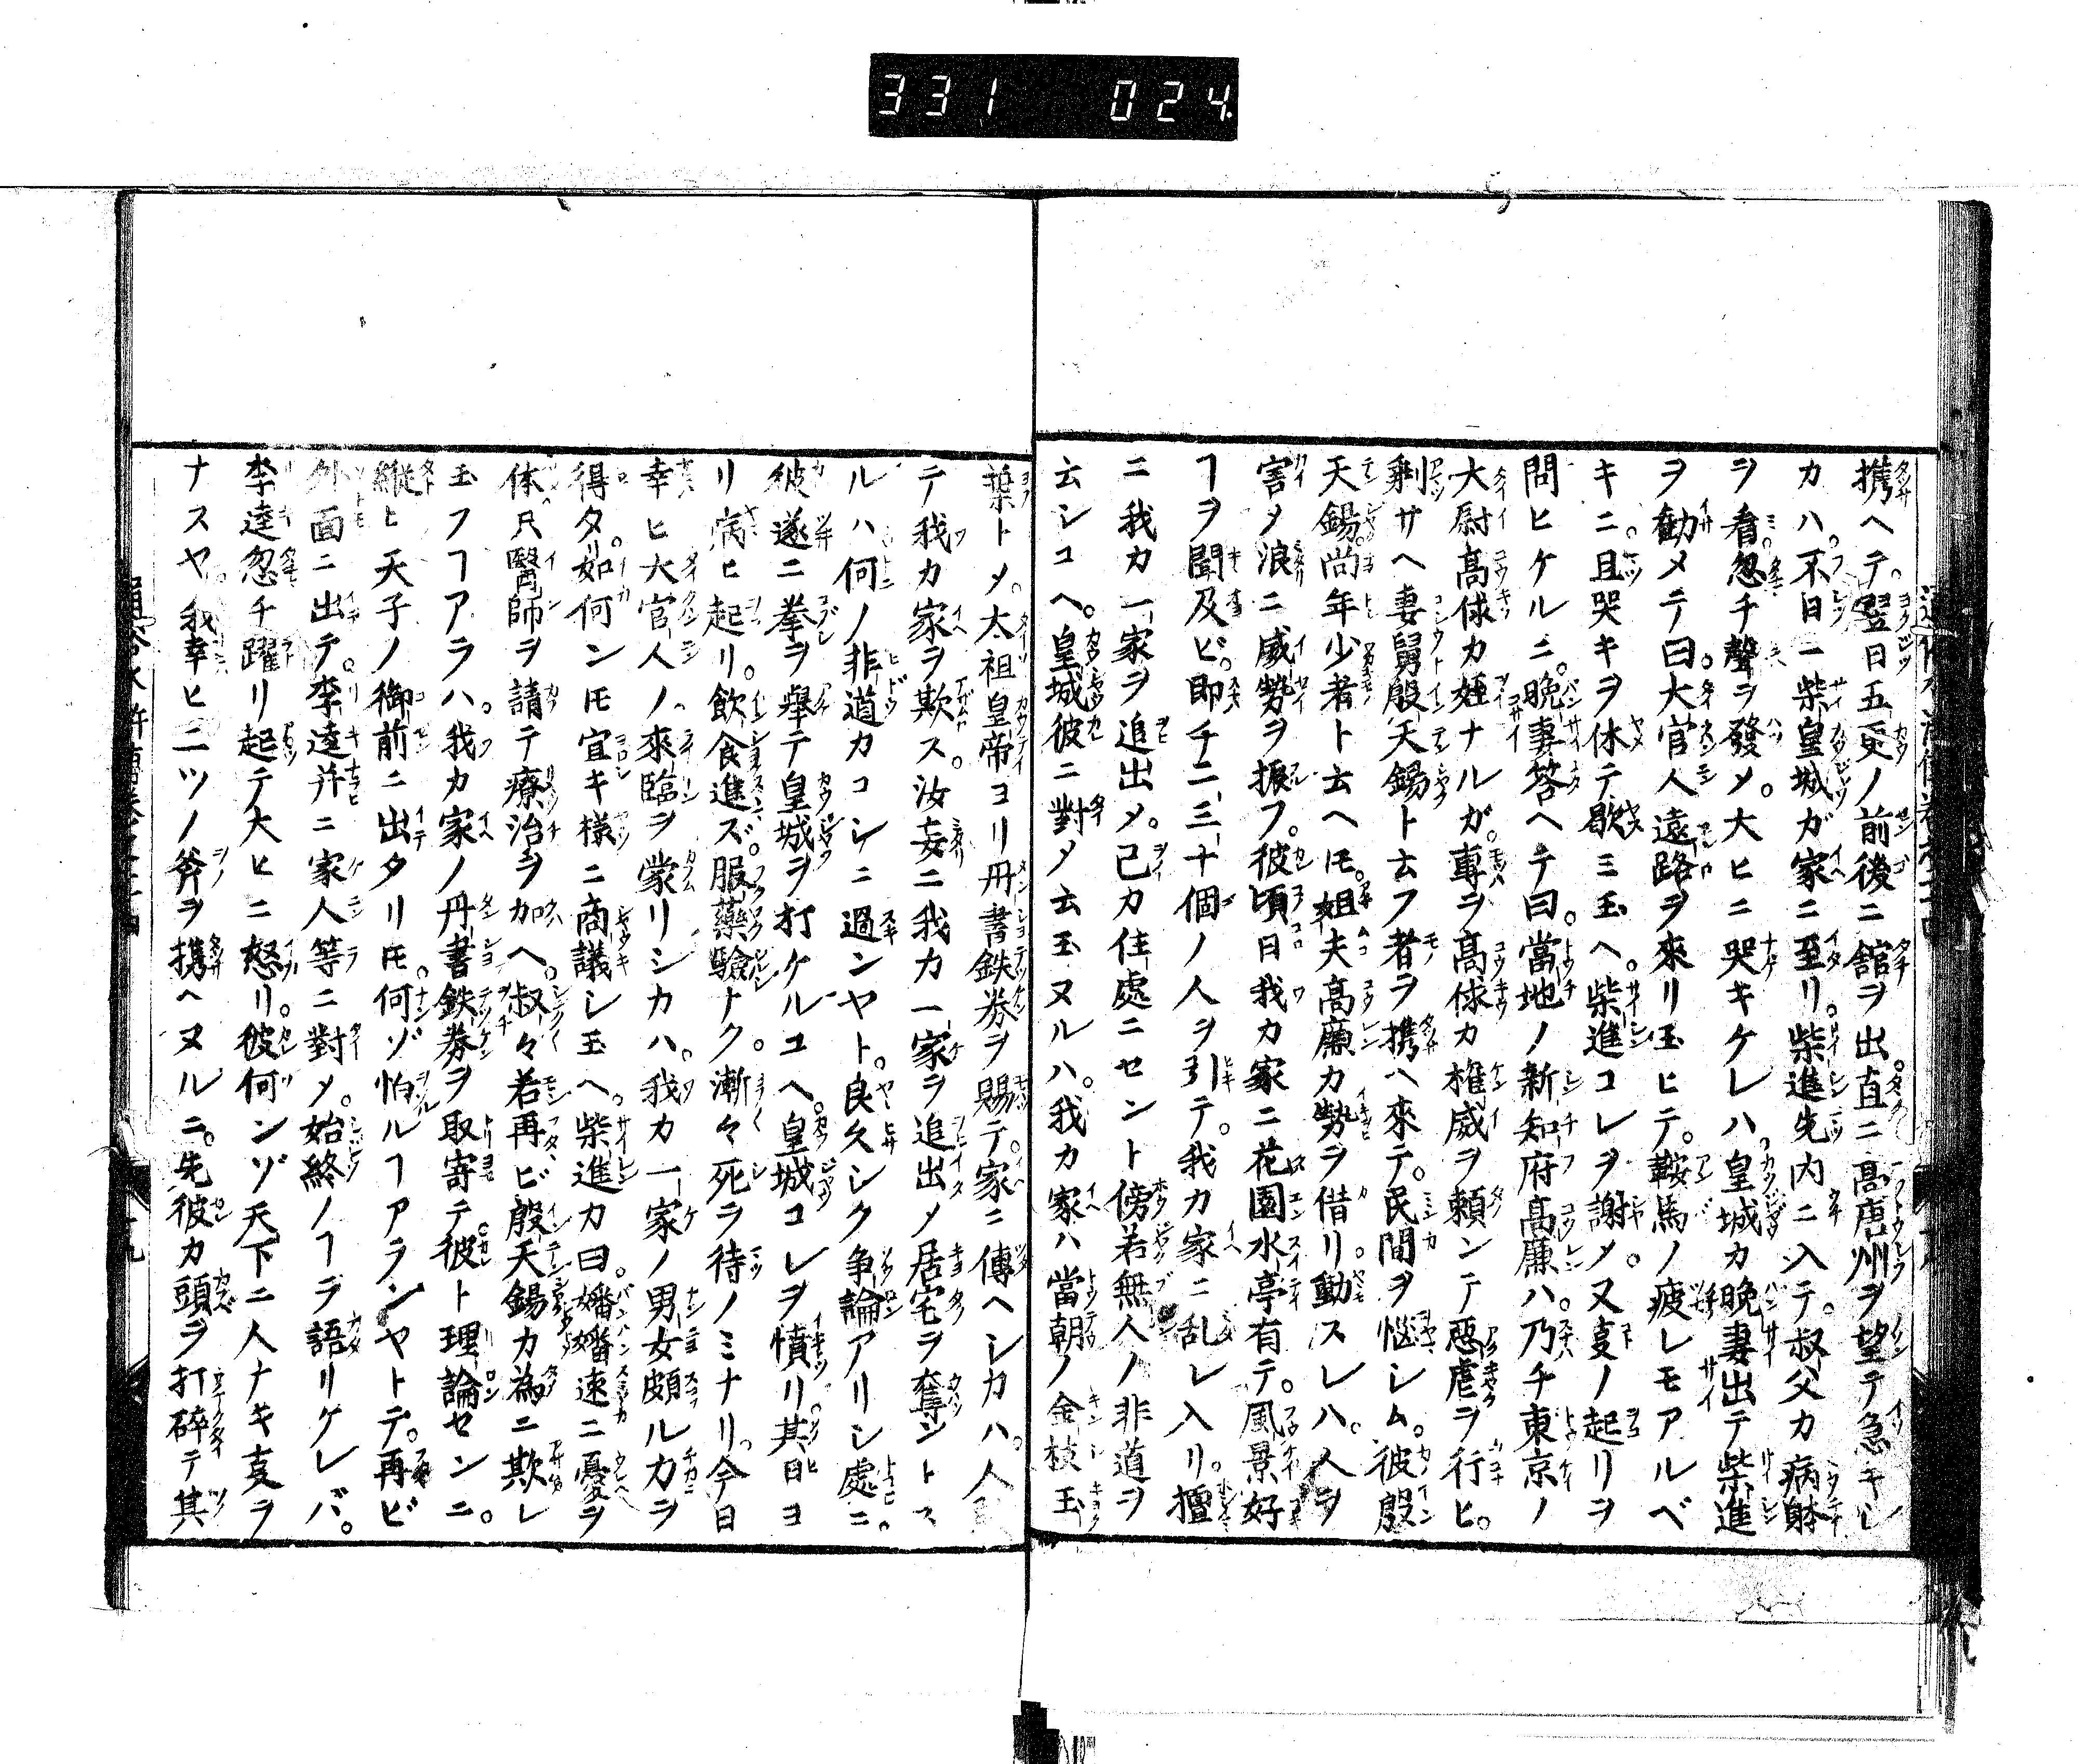 331 024
携ヘテ。翌日五更ノ前後ニ舘ヲ出。直ニ高唐州ヲ望テ急キシ
カハ。不日ニ柴皇城ガ家ニ至リ。柴進先内ニ入テ。叔父カ病躰
ヲ看。忽チ聲ヲ發メ。大ヒニ哭キケレハ。皇城カ晩妻出テ柴進
ヲ勧メテ曰。大官人遠路ヲ來リ玉ヒテ。鞍馬ノ疲レモアルベ
キニ。且哭キヲ休テ歇ミ玉ヘ。柴進コレヲ謝メ。又叓ノ起リヲ
問ヒケルニ。晩妻答ヘテ曰。當地ノ新知府高廉ハ。乃チ東京ノ
大尉高俅カ姪ナルガ。專ヲ高俅カ権威ヲ頼ンテ惡虐ヲ行ヒ。
剰サヘ妻舅殷天錫ト云フ者ヲ携ヘ來テ。民間ヲ惱シム。彼殷
天錫。尚年少者ト云ヘ𪜈。姐夫高廉カ勢ヲ借リ動スレハ。人ヲ
害メ浪ニ威勢ヲ振フ。彼頃日我カ家ニ花園水亭有テ。風景好
ヿヲ聞及ビ。即チ二三十個ノ人ヲ引テ。我カ家ニ乱レ入リ。擅
ニ我カ一家ヲ追出メ。己カ住處ニセント傍若無人ノ非道ヲ
云シユヘ。皇城彼ニ對メ云玉ヌルハ。我カ家ハ當朝ノ金枝玉
葉トメ。太祖皇帝ヨリ丹書鉄券ヲ賜テ。家ニ傳ヘシカハ。人
テ我カ家ヲ欺ス。汝妄ニ我カ一家ヲ追出メ居宅ヲ奪ントス
ルハ何ノ非道カコレニ過ンヤト。良久シク争論アリシ處ニ。
彼遂ニ拳ヲ舉テ皇城ヲ打ケルユヘ。皇城コレヲ憤リ其日ヨ
リ病ヒ起リ。飲食進ズ。服藥驗ナク。漸々死ヲ待ノミナリ。今日
幸ヒ大官人ノ來臨ヲ蒙リシカハ。我カ一家ノ男女頗ル力ヲ
得タリ。如何ン𪜈宜キ様ニ商議シ玉ヘ。柴進カ曰。嬸嬸速ニ憂ヲ
休只醫師ヲ請テ療治ヲ加ヘ。叔々若再ビ殷天錫カ為ニ欺レ
玉フヿアラハ。我カ家ノ丹書鉄劵ヲ取寄テ彼ト理論センニ。
縦ヒ天子ノ御前ニ出タリ𪜈。何ゾ怕ルヿアランヤトテ。再ビ
外面ニ出テ。李逵并ニ家人等ニ對メ。始終ノヿヲ語リケレバ。
李逵忽チ躍リ起テ大ヒニ怒リ。彼何ンゾ天下ニ人ナキ叓ヲ
ナスヤ。我幸ヒ二ツノ斧ヲ携ヘヌルニ。先彼カ頭ヲ打碎テ其